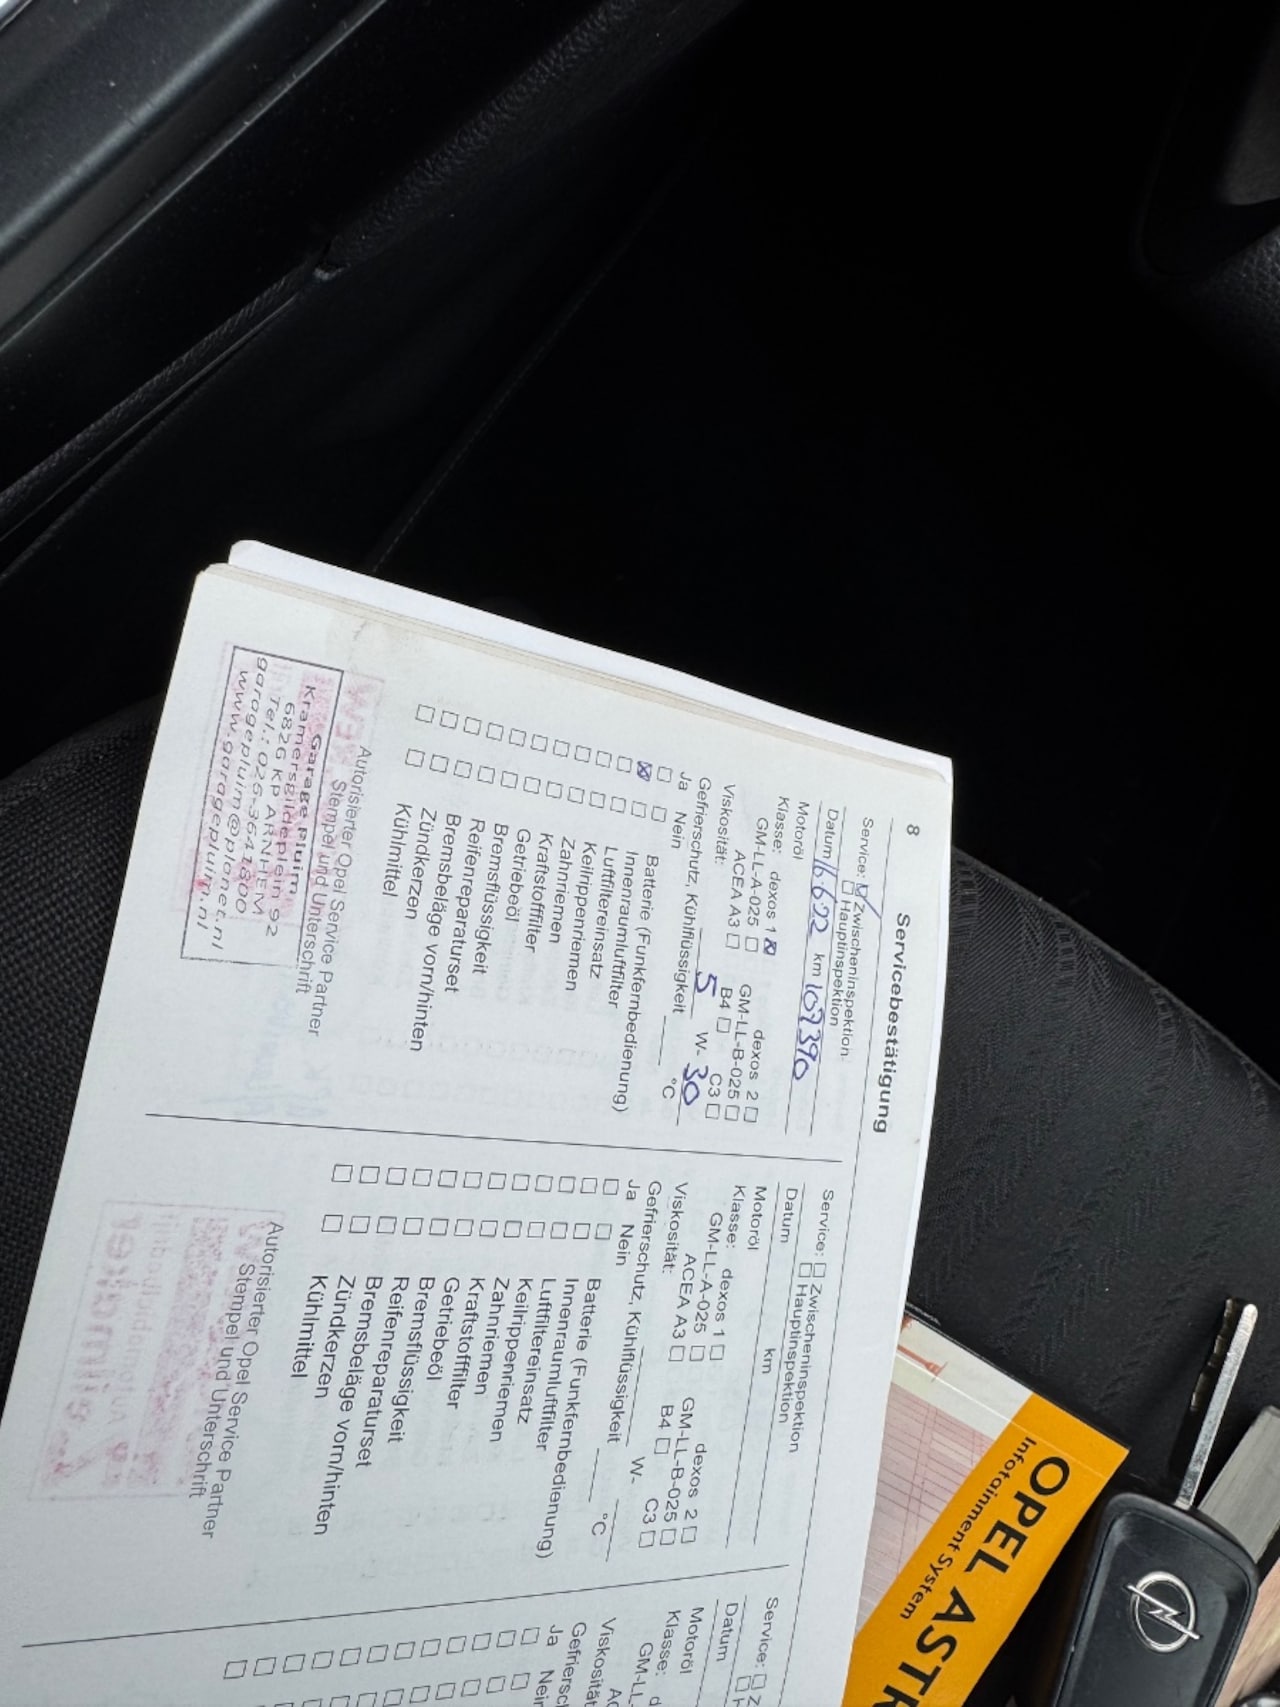 8
Servicebestätigung
Service: ☑ Zwischeninspektion
☐ Hauptinspektion
Datum 16 6 22 km 107390
Motoröl
Klasse: dexos 1 ☒ dexos 2 ☐
GM-LL-A-025 ☐ GM-LL-B-025 ☐
ACEA A3 ☐ B4 ☐ C3 ☐
Viskosität: 5 W- 30
Gefrierschutz, Kühlflüssigkeit °C
Ja Nein
☐ ☐ Batterie (Funkfernbedienung)
☒ ☐ Innenraumluftfilter
☐ ☐ Luftfiltereinsatz
☐ ☐ Keilrippenriemen
☐ ☐ Zahnriemen
☐ ☐ Kraftstofffilter
☐ ☐ Getriebeöl
☐ ☐ Bremsflüssigkeit
☐ ☐ Reifenreparaturset
☐ ☐ Bremsbeläge vorn/hinten
☐ ☐ Zündkerzen
☐ ☐ Kühlmittel
Autorisierter Opel Service Partner
Stempel und Unterschrift
Garage Pluim
Kramersgildeplein 92
6826 kp ARNHEM
Tel.: 026-3641800
garagepluim@planet.nl
www.garagepluim.nl
Service: ☐ Zwischeninspektion
☐ Hauptinspektion
Datum km
Motoröl
Klasse: dexos 1 ☐ dexos 2 ☐
GM-LL-A-025 ☐ GM-LL-B-025 ☐
ACEA A3 ☐ B4 ☐ C3 ☐
Viskosität: W-
Gefrierschutz, Kühlflüssigkeit °C
Ja Nein
☐ ☐ Batterie (Funkfernbedienung)
☐ ☐ Innenraumluftfilter
☐ ☐ Luftfiltereinsatz
☐ ☐ Keilrippenriemen
☐ ☐ Zahnriemen
☐ ☐ Kraftstofffilter
☐ ☐ Getriebeöl
☐ ☐ Bremsflüssigkeit
☐ ☐ Reifenreparaturset
☐ ☐ Bremsbeläge vorn/hinten
☐ ☐ Zündkerzen
☐ ☐ Kühlmittel
Autorisierter Opel Service Partner
Stempel und Unterschrift
Service: ☐ Z
☐ H
Datum
Motoröl
Klasse: d
GM-LL-
AC
Viskosität
Gefriersc
Ja Nein
OPEL ASTR
Infotainment System